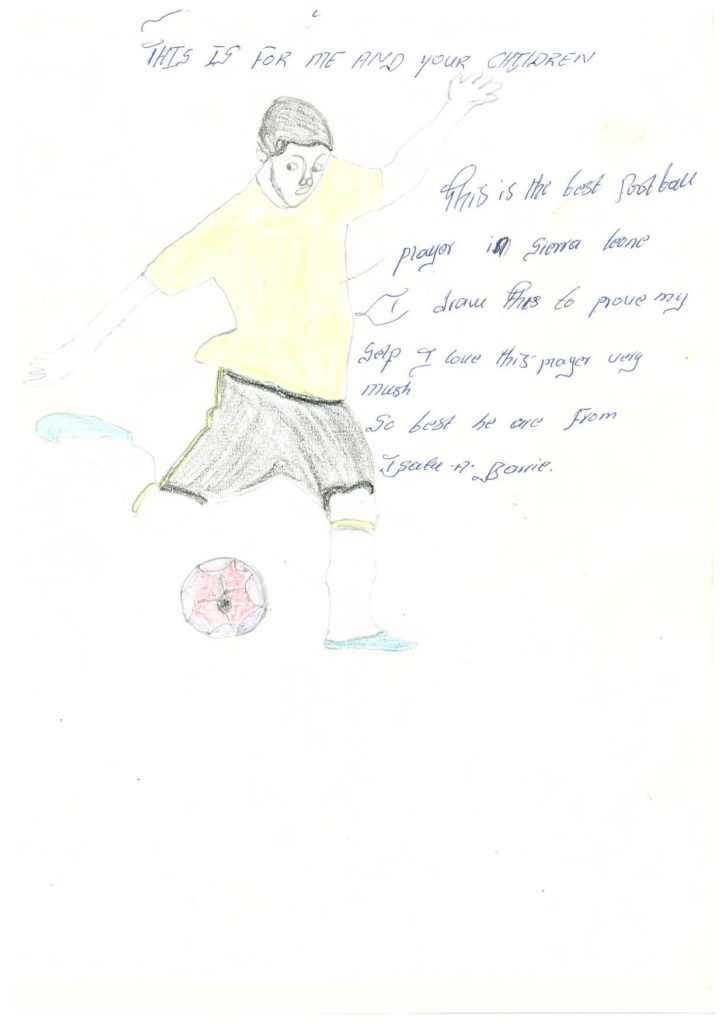 THIS IS FOR ME AND YOUR CHILDREN
This is the best football
prayer in Sierra leone
I draw this to prove my
Self I love this prayer very
mush
So best he are From
Isatu .A. Barrie.